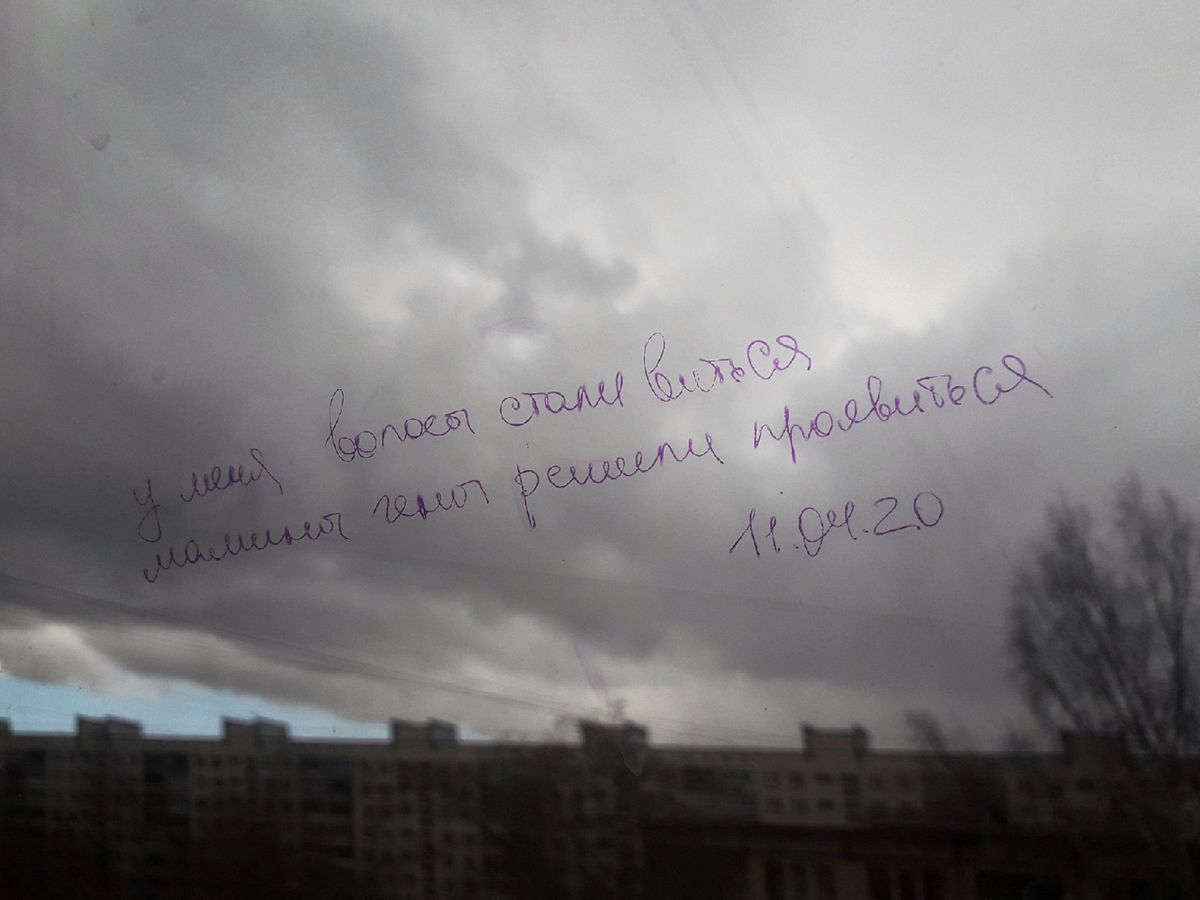 у меня волосы стали виться
мамины гены решили проявиться
11.04.20